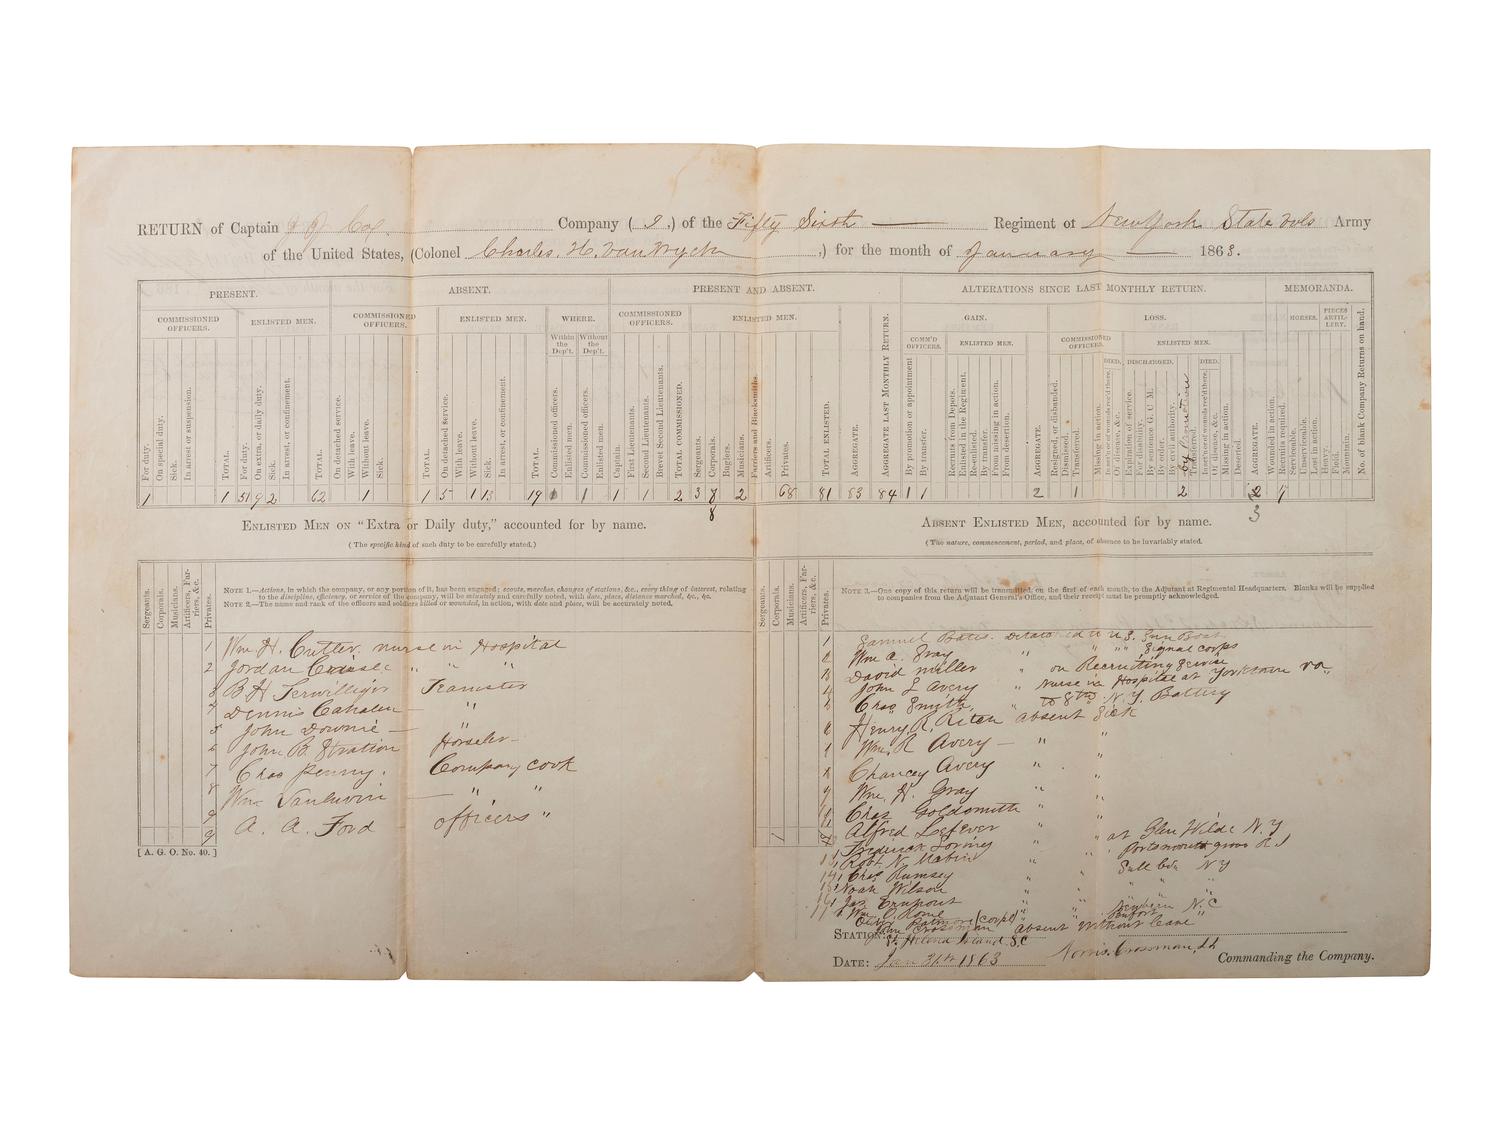 RETURN of Captain Cox Company ( I, ) of the Fifty Sixth Regiment of New York State Vols Army
of the United States, (Colonel Charles. H. Van Wyck ,) for the month of January 1863.
PRESENT. ABSENT. PRESENT AND ABSENT. ALTERATIONS SINCE LAST MONTHLY RETURN. MEMORANDA.
COMMISSIONED OFFICERS. ENLISTED MEN. COMMISSIONED OFFICERS. ENLISTED MEN. WHERE. COMMISSIONED OFFICERS. ENLISTED MEN. GAIN. LOSS. HORSES. PIECES ARTILLERY.
Within the Dep't. Without the Dep't. COMM'D OFFICERS. ENLISTED MEN. COMMISSIONED OFFICERS. ENLISTED MEN.
DIED. DISCHARGED. DIED.
For duty. On special duty. Sick. In arrest or suspension. TOTAL. For duty. On extra, or daily duty. Sick. In arrest, or confinement. TOTAL. On detached service. With leave. Without leave. Sick. TOTAL. On detached service. With leave. Without leave. Sick. In arrest, or confinement. TOTAL. Commissioned officers. Enlisted men. Commissioned officers. Enlisted men. Captain. First Lieutenants. Second Lieutenants. Brevet Second Lieutenants. TOTAL COMMISSIONED. Sergeants. Corporals. Buglers. Musicians. Farriers and Blacksmiths. Artificers. Privates. TOTAL ENLISTED. AGGREGATE. AGGREGATE LAST MONTHLY RETURN. By promotion or appointment By transfer. Recruits from Depots. Enlisted in the Regiment. Re-enlisted. By transfer. From missing in action. From desertion. AGGREGATE. Resigned, or disbanded. Dismissed. Transferred. Missing in action. In action or of wounds rec'd there. Of disease, &c. Expiration of service. For disability. By sentence G. C. M. By order. By civil authority. by promotion Transferred. In action or of wounds rec'd there. Of disease, &c. Missing in action. Deserted. AGGREGATE. Wounded in action. Recruits required. Serviceable. Unserviceable. Lost in action. Heavy. Field. Mountain. No. of blank Company Returns on hand.
1 1 51 9 2 62 1 1 5 1 13 19 1 1 1 2 3 8 2 68 81 83 84 1 1 2 1 2 7
8 3
ENLISTED MEN ON "EXTRA or DAILY duty," accounted for by name. ABSENT ENLISTED MEN, accounted for by name.
(The specific kind of such duty to be carefully stated.) (The nature, commencement, period, and place, of absence to be invariably stated.
Sergeants. Corporals. Musicians. Artificers, Farriers, &c. Privates.
NOTE 1.—Actions, in which the company, or any portion of it, has been engaged; scouts, marches, changes of stations, &c., every thing of interest, relating
to the discipline, efficiency, or service of the company, will be minutely and carefully noted, with date, place, distance marched, &c., &c.
NOTE 2.—The name and rank of the officers and soldiers killed or wounded, in action, with date and place, will be accurately noted.
Sergeants. Corporals. Musicians. Artificers, Farriers, &c. Privates.
NOTE 3.—One copy of this return will be transmitted, on the first of each month, to the Adjutant at Regimental Headquarters. Blanks will be supplied
to companies from the Adjutant General's Office, and their receipt must be promptly acknowledged.
1 Wm H. Cutler nurse in Hospital
2 Jordan " " "
3 B H Terwilliger Teamster
4 Dennis Cahalen — "
5 John Downie — "
6 John B. Stratton Hosteler
7 Chas Penny. Company cook
8 Wm. — " "
9 A. A. Ford officers "
9
[ A. G. O. No. 40. ]
1 Samuel Bates. Detached U.S. Gun Boat
2 Wm a. Gray " " " Signal corps
3 David Miller " on Recruiting Service
4 John L Avery " Nurse in Hospital at Yorktown Va.
5 Chas Smith, " to 8th N. Y. Battery
6 Henry R. absent Sick
Wm. R Avery — " "
8 Chancey Avery " "
9 Wm. H. Gray " "
10 Chas Goldsmith " "
11 Alfred Lefever " " at Glen Wilde N. Y
Frederick " " Portsmouth grove R I
13 Robt N. Mabin " "
14 Chas Rumsey " " N Y
15 Noah Wilson " " " "
16 Jas " " " "
17 Wm. O. Rome " " N. C
(corpl) " "
John Crossman absent without leave
STATION: St Helena Island S.C
DATE: Jan 31st 1863 Norris Crossman, Lt Commanding the Company.